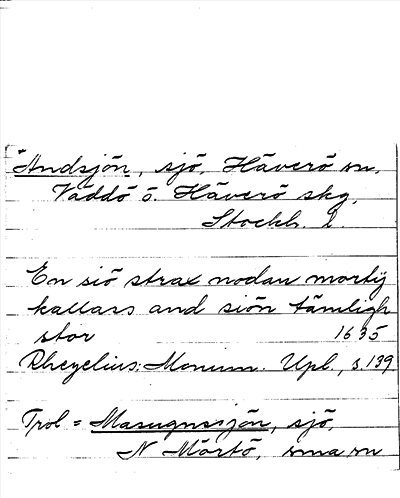 *Andsjön, sjö, Häverö sn,
Väddö o. Häverö skg,
Stockh. l.
En siö strax nodan mortij
kallass and siön tämligh
stor 1635
Rhezelius: Monum. Upl., s. 139
Trol = Masugnssjön, sjö,
N Mårtö, sma sn